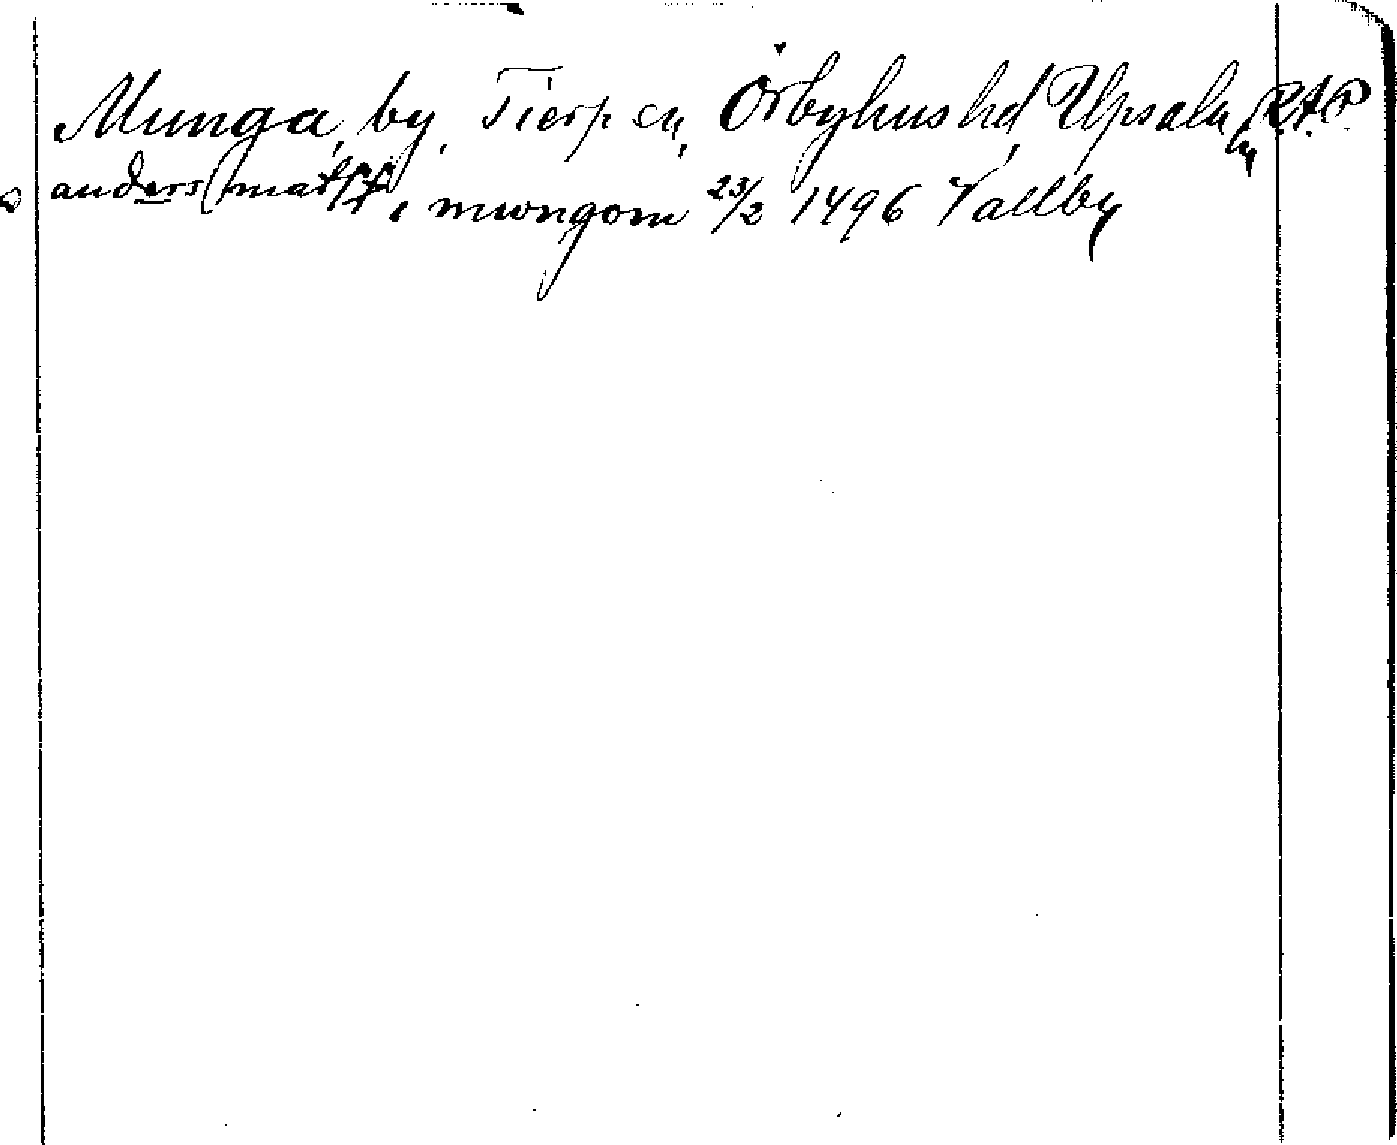 Munga, by, Tierp sn, Örbyhus hd, Upsala ly RAP
anders matss i mwngom 23/2 1496 Vallby